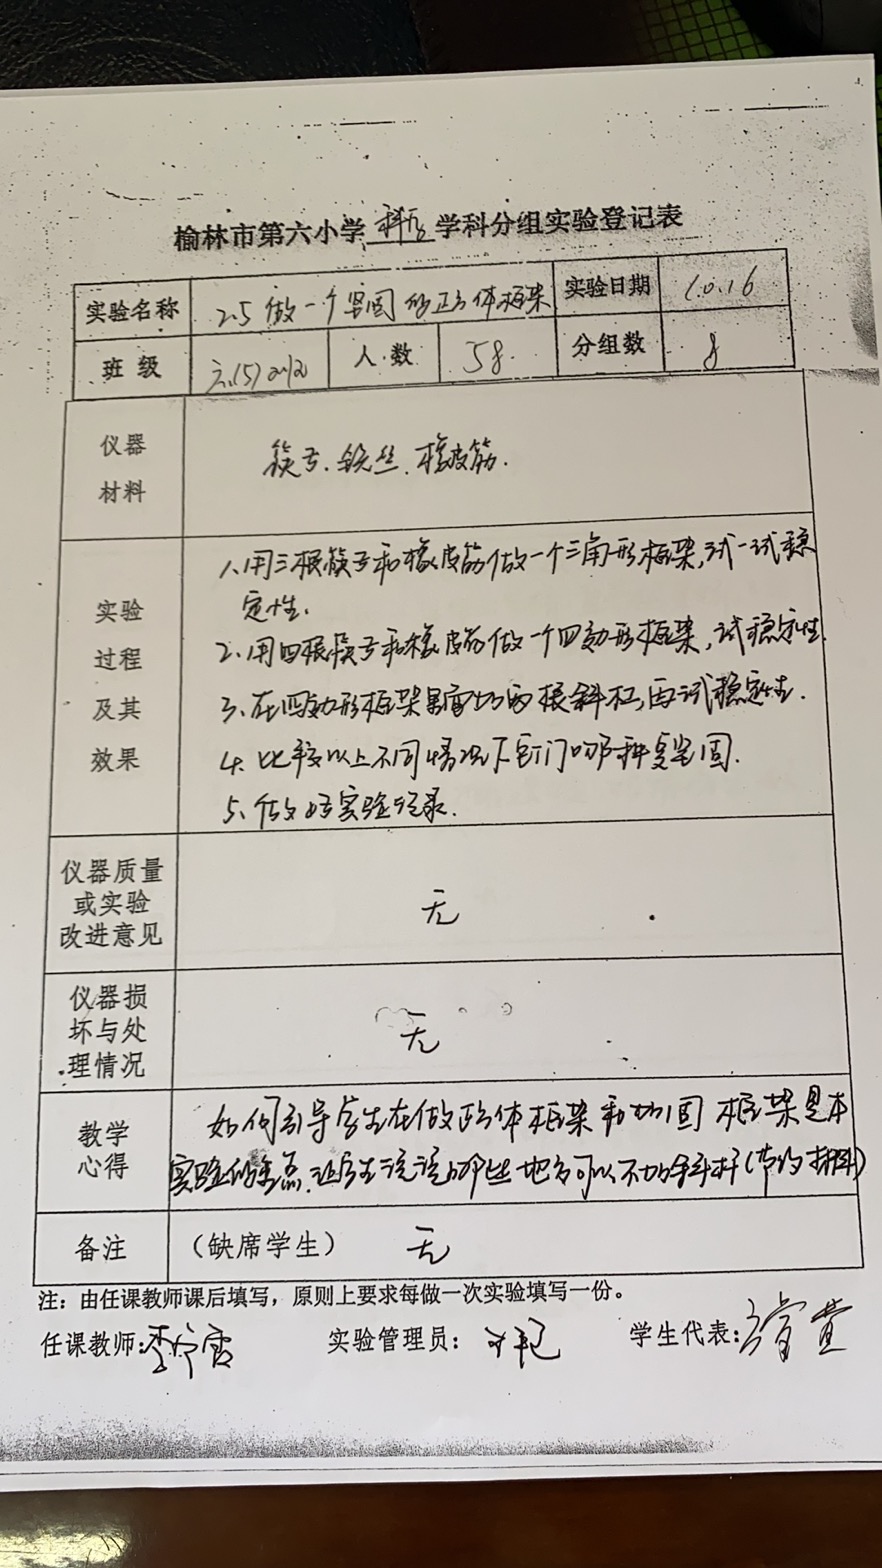 榆林市第六小学科学学科分组实验登记表
实验名称 2.5做一个坚固的正方体框架 实验日期 10.16
班级 六.(5) 人数 58. 分组数 8
仪器材料 筷子.铁丝.橡皮筋.
实验过程及其效果
1.用三根筷子和橡皮筋做一个三角形框架,试一试稳
定性.
2.用四根筷子和橡皮筋做一个四边形框架,试稳定性.
3、在四边形框架里面加两根斜杠,再试稳定性.
4.比较以上不同情况下它们哪种更坚固.
5、做好实验记录.
仪器质量或实验改进意见 无
仪器损坏与处理情况 无
教学心得 如何引导学生在做正方体框架和加固框架是本
实验的重点.让学生说说哪些地方可以不加斜杆(节约材料)
备注 (缺席学生) 无
注：由任课教师课后填写，原则上要求每做一次实验填写一份。
任课教师: 实验管理员： 学生代表: